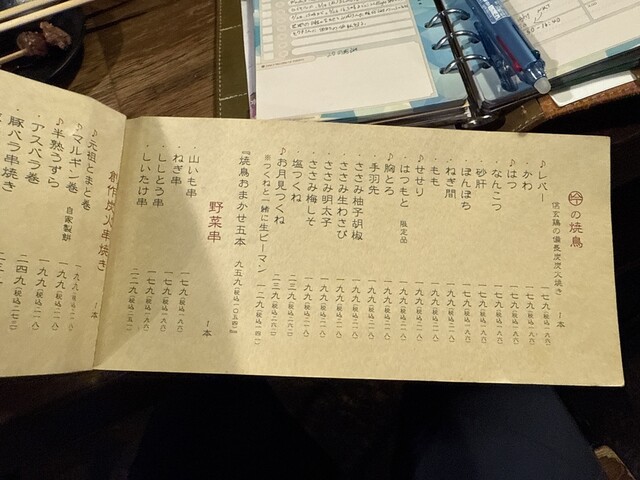 の焼鳥
信玄鶏の備長炭火焼き
一本
♪レバー 一七九(税込一九六)
・かわ 一七九(税込一九六)
♪はつ 一七九(税込一九六)
・なんこつ 一七九(税込一九六)
・砂肝 一七九(税込一九六)
・ぼんぼち 一七九(税込一九六)
・ねぎ間 一七九(税込一九六)
・もも 一九九(税込二一八)
♪せせり 一九九(税込二一八)
・はつもと 限定品 一九九(税込二一八)
♪胸とろ 一九九(税込二一八)
・手羽先 一九九(税込二一八)
・ささみ柚子胡椒 一九九(税込二一八)
・ささみ生わさび 一九九(税込二一八)
・ささみ明太子 一九九(税込二一八)
・ささみ梅しそ 一九九(税込二一八)
・塩つくね 二三九(税込二六二)
♪お月見つくね 二三九(税込二六二)
※つくねと一緒に生ピーマン 一二九(税込一四一)
『焼鳥おまかせ五本 九五九(税込一〇五四)』
野菜串
一本
・山いも串 一七九(税込一九六)
・ねぎ串 一七九(税込一九六)
・ししとう串 一七九(税込一九六)
・しいたけ串 二二九(税込二五一)
創作炭火串焼き
一本
♪元祖とまと巻
♪マルギン巻 自家製餅 一九九(税込二一八)
♪半熟うずら 一九九(税込二一八)
・アスパラ巻 二四九(税込二七二)
・豚バラ串焼き